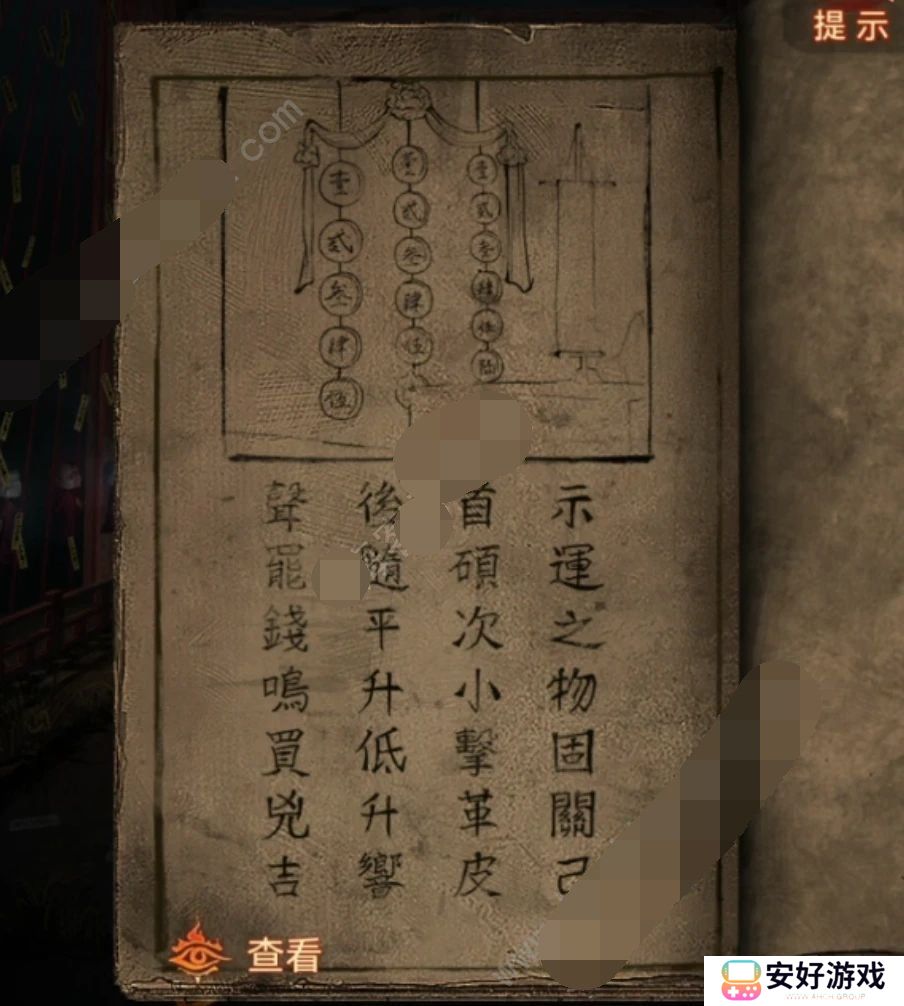 提示
壹貳叁肆伍
壹貳叁肆伍
壹貳叁肆伍陆
示運之物固關己
首碩次小擊革皮
後隨平升低升響
聲罷錢鳴買兇吉
查看
安好游戏
.com